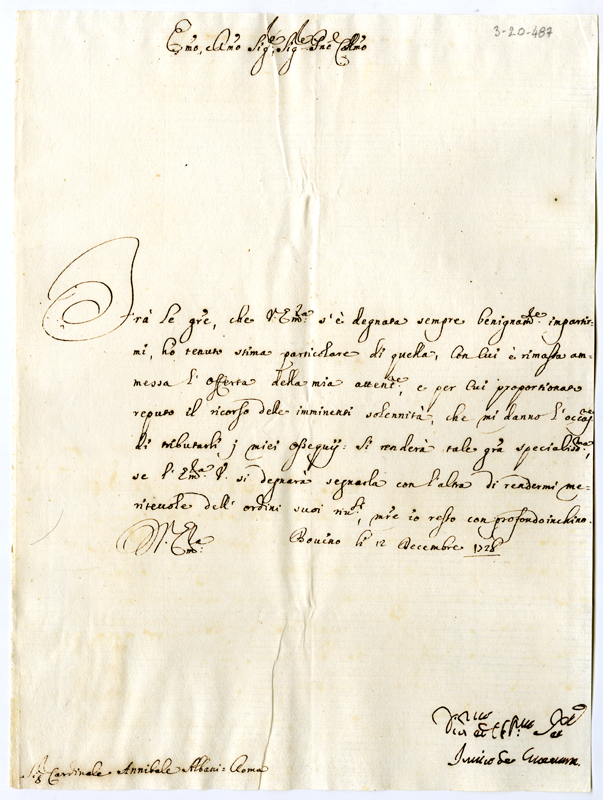 3-20-487
Emo, e Rmo Sig.re Sig.re Pne Colmo
Frà le gre, che V. Emza s'è degnata sempre benignamte impartir-
mi, hò tenuto stima particolare di quella, con cui è rimasta am-
messa l'offerta della mia attenne, e per cui proportionato
reputo il ricorso delle imminenti solennità, che mi danno l'occasne
di tributarli j miei ossequij: si renderà tale gra specialissma,
se l'Emza V. si degnarà segnarla con l'altra di rendermi me-
ritevole dell'ordini suoi rivti, mre io resto con profondo inchino.
V. Emza Bovino li 12 Decembre 1728
Sig. Cardinale Annibale Albani = Roma